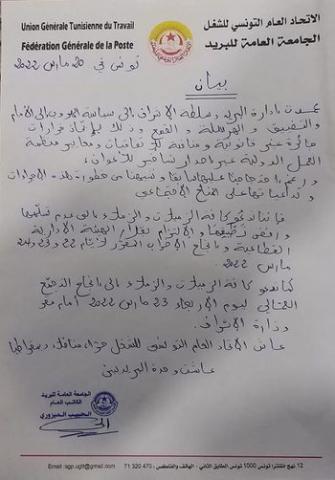 Union Générale Tunisienne du Travail
Fédération Générale de la Poste
الاتحاد العام التونسي للشغل
الجامعة العامة للبريد
تونس في 20 مارس 2022
بيان
عمدت إدارة البريد وسلطة الإشراف إلى سياسة الهروب إلى الأمام
والتضييق والهرسلة والقمع وذلك باتخاذ قرارات
جائرة غير قانونية ومنافية لكل اتفاقيات ومعايير منظمة
العمل الدولية عبر إصدار تساخير للأعوان
ورغم احتجاجنا عليها سابقا وتنبيهنا من خطورة هذه الإجراءات
وتداعياتها على المناخ الاجتماعي
فإننا ندعو كافة الزميلات والزملاء إلى عدم تسلمها
ورفض تطبيقها والالتزام بقرار الهيئة الإدارية
القطاعية وبإنجاح الإضراب المقرر لأيام 22 و23 و24
مارس 2022.
كما ندعو كافة الزميلات والزملاء إلى إنجاح التجمع
العمالي ليوم الإربعاء 23 مارس 2022 أمام مقر
وزارة الإشراف.
عاش الاتحاد العام التونسي للشغل حرا، مناضلا، ديمقراطيا
عاشت وحدة البريديين
الجامعة العامة للبريد
الكاتب العام
الحبيب الميزوري
12 نهج انقلترا تونس 1000 تونس الطابق الثاني - الهاتف والفاكس : 71 320 470
Email :sgp.ugtt@gmail.com